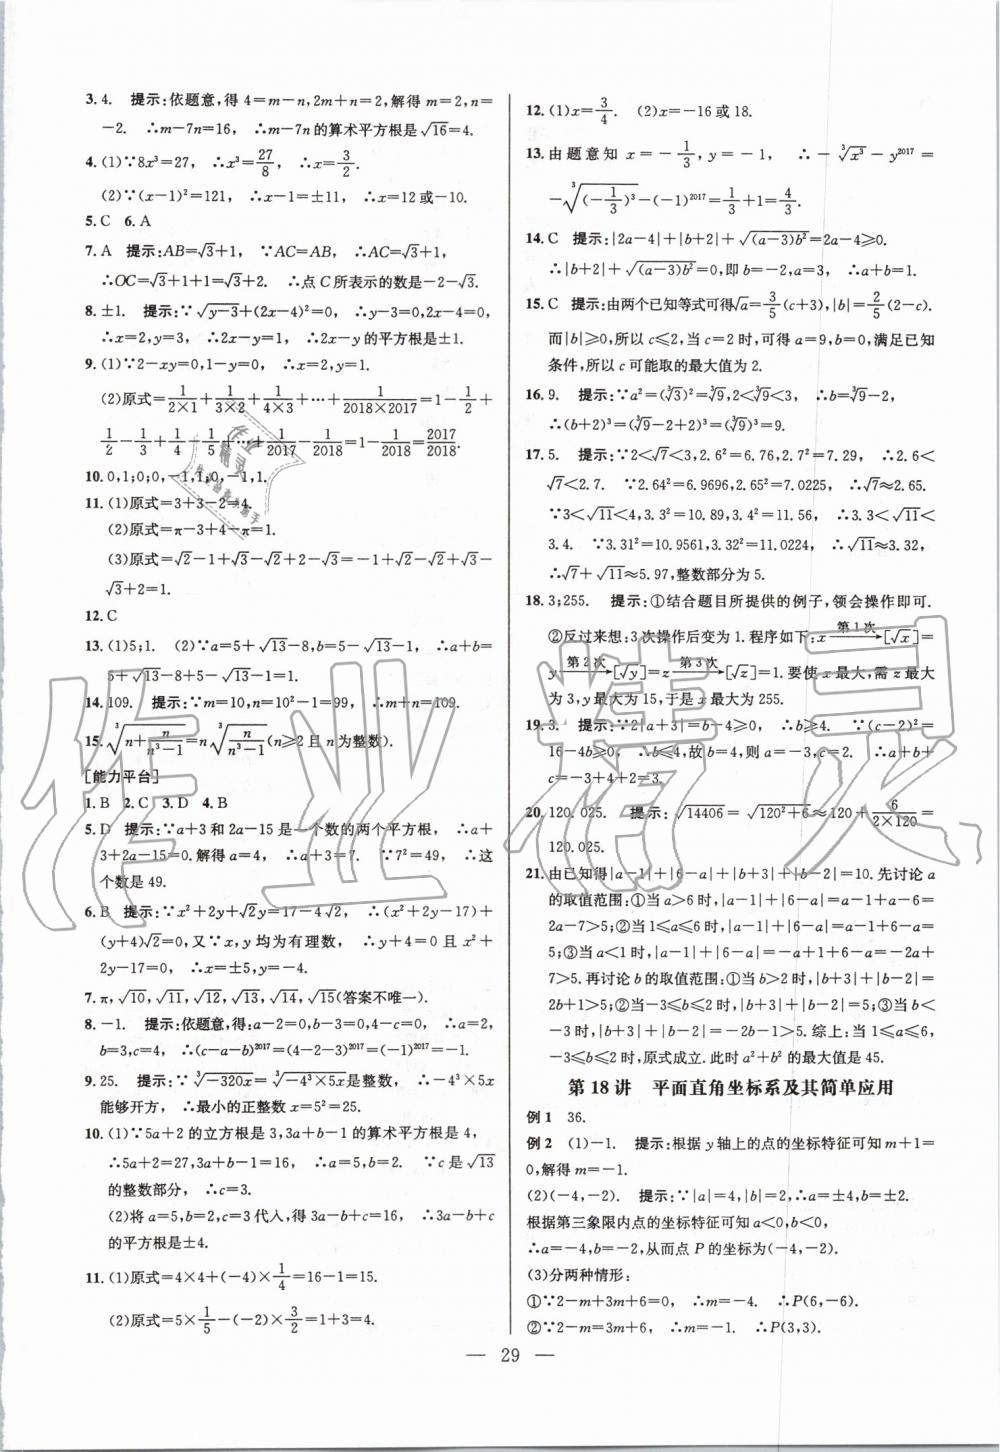 3. 4. 提示:依题意,得 4=m-n,2m+n=2,解得 m=2,n=
-2. ∴m-7n=16, ∴m-7n的算术平方根是√16=4.
4. (1)∵8x³=27, ∴x³=27/8, ∴x=3/2.
(2)∵(x-1)²=121, ∴x-1=±11, ∴x=12或-10.
5. C 6. A
7. A 提示:AB=√3+1, ∵AC=AB, ∴AC=√3+1,
∴OC=√3+1+1=√3+2. ∴点C所表示的数是-2-√3.
8. ±1. 提示:∵√(y-3)+(2x-4)²=0, ∴y-3=0,2x-4=0,
∴x=2,y=3, ∴2x-y=1, ∴2x-y的平方根是±1.
9. (1)∵2-xy=0,1-y=0, ∴x=2,y=1.
(2)原式=1/(2×1)+1/(3×2)+1/(4×3)+…+1/(2018×2017)=1-1/2+
1/2-1/3+1/4-1/5+…+1/2017-1/2018=1-1/2018=2017/2018.
10. 0,1;0;0,-1,1;0,-1,1.
11. (1)原式=3+3-2=4.
(2)原式=π-3+4-π=1.
(3)原式=√2-1+√3-√2+2-√3=-1+√2-√2+√3-
√3+2=1.
12. C
13. (1)5;1. (2)∵a=5+√13-8,b=5-√13-1, ∴a+b=
5+√13-8+5-√13-1=1.
14. 109. 提示:∵m=10,n=10²-1=99, ∴m+n=109.
15. ³√(n+n/(n³-1))=n³√(n/(n³-1))(n≥2且n为整数).
[能力平台]
1. B 2. C 3. D 4. B
5. D 提示:∵a+3和2a-15是一个数的两个平方根, ∴a+
3+2a-15=0.解得a=4, ∴a+3=7. ∵7²=49, ∴这
个数是49.
6. B 提示:∵x²+2y+√2y=17-4√2, ∴(x²+2y-17)+
(y+4)√2=0,又∵x,y均为有理数, ∴y+4=0且x²+
2y-17=0, ∴x=±5,y=-4.
7. π,√10,√11,√12,√13,√14,√15(答案不唯一).
8. -1. 提示:依题意,得:a-2=0,b-3=0,4-c=0, ∴a=2,
b=3,c=4, ∴(c-a-b)²⁰¹⁷=(4-2-3)²⁰¹⁷=(-1)²⁰¹⁷=-1.
9. 25. 提示:∵³√(-320x)=³√(-4³×5x)是整数, ∴-4³×5x
能够开方, ∴最小的正整数x=5²=25.
10. (1)∵5a+2的立方根是3,3a+b-1的算术平方根是4,
∴5a+2=27,3a+b-1=16, ∴a=5,b=2. ∵c是√13
的整数部分, ∴c=3.
(2)将a=5,b=2,c=3代入,得3a-b+c=16, ∴3a-b+c
的平方根是±4.
11. (1)原式=4×4+(-4)×1/4=16-1=15.
(2)原式=5×1/5-(-2)×3/2=1+3=4.
12. (1)x=3/4. (2)x=-16或18.
13. 由题意知 x=-1/3,y=-1, ∴-³√x³-y²⁰¹⁷=
-³√(-1/3)³-(-1)²⁰¹⁷=1/3+1=4/3.
14. C 提示:|2a-4|+|b+2|+√((a-3)b²)=2a-4≥0.
∴|b+2|+√((a-3)b²)=0,即b=-2,a=3, ∴a+b=1.
15. C 提示:由两个已知等式可得√a=3/5(c+3),|b|=2/5(2-c).
而|b|≥0,所以c≤2,当c=2时,可得a=9,b=0,满足已知
条件,所以c可能取的最大值为2.
16. 9. 提示:∵a²=(³√3)²=³√9,2<³√9<3, ∴b=³√9-2,
∴(b+2)³=(³√9-2+2)³=(³√9)³=9.
17. 5. 提示:∵2<√7<3,2.6²=6.76,2.7²=7.29, ∴2.6<
√7<2.7. ∵2.64²=6.9696,2.65²=7.0225, ∴√7≈2.65.
∵3<√11<4,3.3²=10.89,3.4²=11.56, ∴3.3<√11<
3.4. ∵3.31²=10.9561,3.32²=11.0224, ∴√11≈3.32,
∴√7+√11≈5.97,整数部分为5.
18. 3;255. 提示:①结合题目所提供的例子,领会操作即可.
②反过来想:3次操作后变为1.程序如下:x 第1次→[√x]=
y 第2次→[√y]=z 第3次→[√z]=1.要使x最大,需z最大
为3,y最大为15,于是x最大为255.
19. 3. 提示:∵2|a+3|=b-4≥0, ∴b≥4. ∵(c-2)²=
16-4b≥0, ∴b≤4,故b=4,a=-3,c=2. ∴a+b+
c=-3+4+2=3.
20. 120.025. 提示:√14406=√(120²+6)≈120+6/(2×120)=
120.025.
21. 由已知得|a-1|+|6-a|+|b+3|+|b-2|=10.先讨论a
的取值范围:①当a>6时,|a-1|+|6-a|=a-1+a-6=
2a-7>5;②当1≤a≤6时,|a-1|+|6-a|=a-1+6-a=
5;③当a<1时,|a-1|+|6-a|=-a+1+6-a=-2a+
7>5.再讨论b的取值范围:①当b>2时,|b+3|+|b-2|=
2b+1>5;②当-3≤b≤2时,|b+3|+|b-2|=5;③当b<
-3时,|b+3|+|b-2|=-2b-1>5.综上:当1≤a≤6,
-3≤b≤2时,原式成立.此时a²+b²的最大值是45.
第18讲 平面直角坐标系及其简单应用
例1 36.
例2 (1)-1. 提示:根据y轴上的点的坐标特征可知m+1=
0,解得m=-1.
(2)(-4,-2). 提示:∵|a|=4,|b|=2, ∴a=±4,b=±2.
根据第三象限内点的坐标特征可知a<0,b<0,
∴a=-4,b=-2,从而点P的坐标为(-4,-2).
(3)分两种情形:
①∵2-m+3m+6=0, ∴m=-4. ∴P(6,-6).
②∵2-m=3m+6, ∴m=-1. ∴P(3,3).
— 29 —
作业精灵